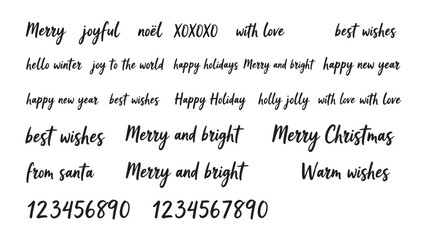 Merry joyful noël XOXOXO with love best wishes
hello winter joy to the world happy holidays Merry and bright happy new year
happy new year best wishes Happy Holiday holly jolly with love with love
best wishes Merry and bright Merry Christmas
from santa Merry and bright Warm wishes
123456890 1234567890